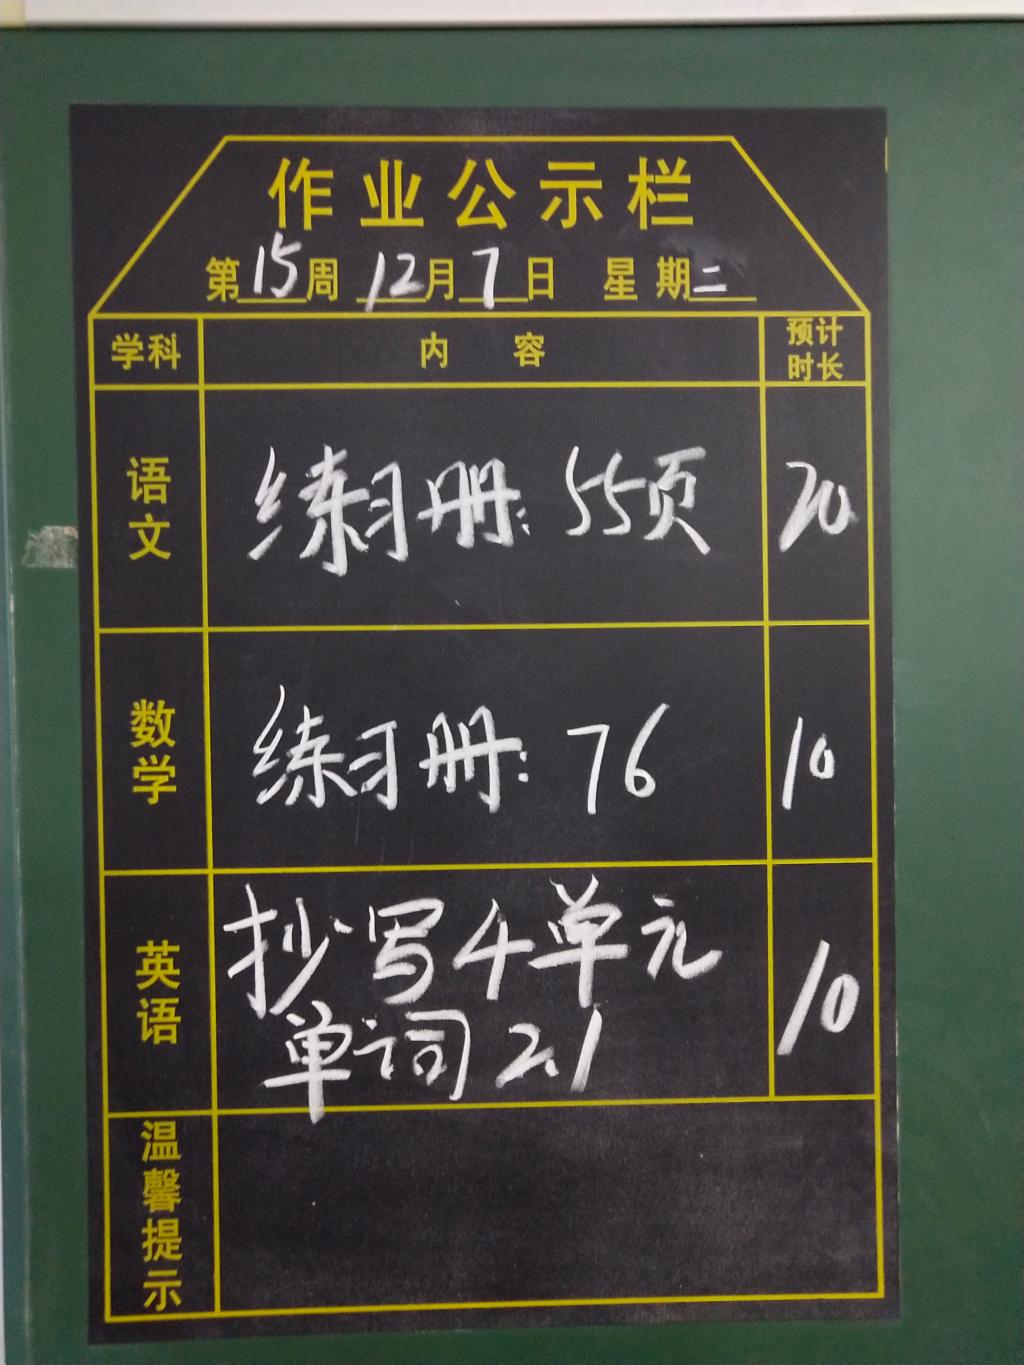 作业公示栏
第15周 12月7日 星期二
学科 内容 预计时长
语文 练习册: 55页 20
数学 练习册: 76 10
英语 抄写4单元 10
单词2.1
温馨提示